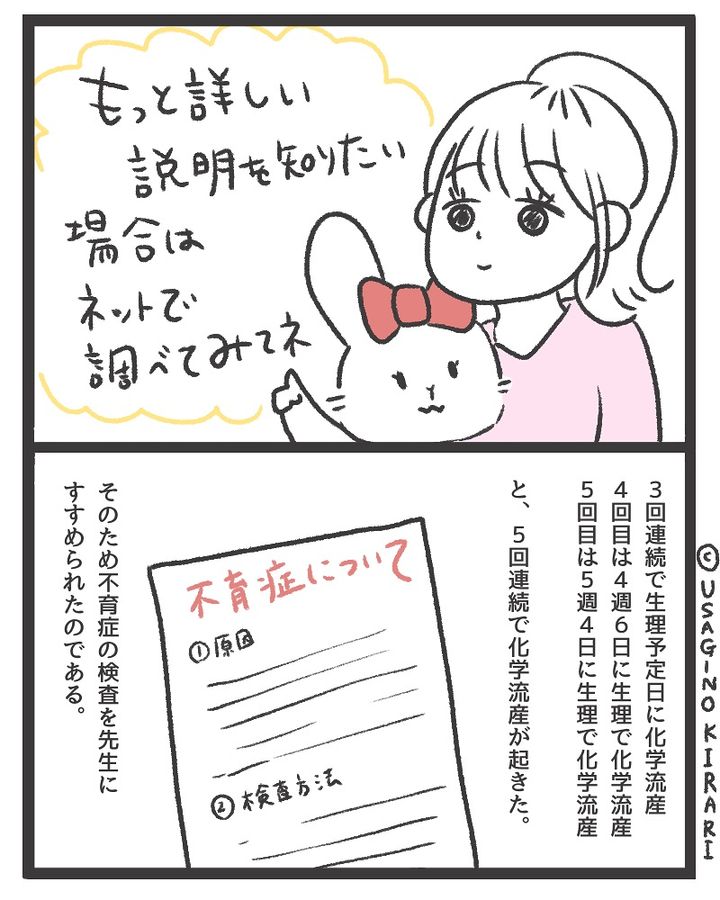 もっと詳しい
説明を知りたい
場合は
ネットで
調べてみてネ
3回連続で生理予定日に化学流産
4回目は4週6日に生理で化学流産
5回目は5週4日に生理で化学流産
と、5回連続で化学流産が起きた。
不育症について
①原因
②検査方法
そのため不育症の検査を先生に
すすめられたのである。
©USAGINO KIRARI